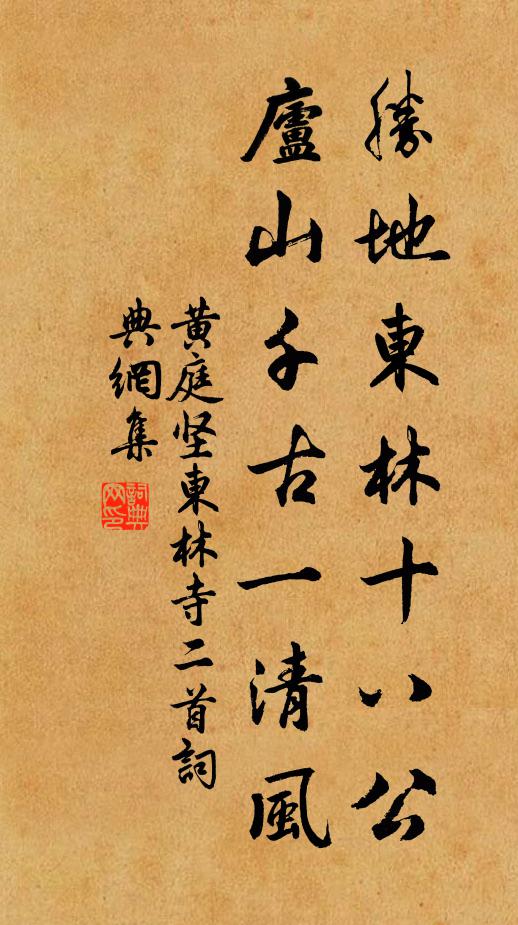 勝地東林十八公
廬山千古一清風
黄庭坚東林寺二首詞
典網集
詞典
网印